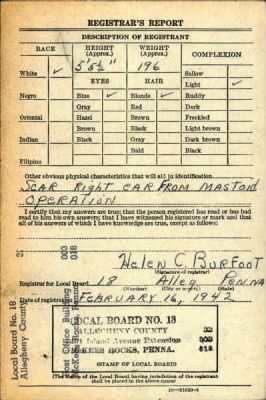 REGISTRAR'S REPORT
DESCRIPTION OF REGISTRANT
RACE HEIGHT (Approx.) WEIGHT (Approx.) COMPLEXION
5'5½" 196
White ✓ Sallow
EYES HAIR Light ✓
Negro Blue ✓ Blonde ✓ Ruddy
Gray Red Dark
Oriental Hazel Brown Freckled
Brown Black Light brown
Indian Black Gray Dark brown
Bald Black
Filipino
Other obvious physical characteristics that will aid in identification
SCAR RIGHT EAR FROM MASTOID
OPERATION
I certify that my answers are true; that the person registered has read or has had
read to him his own answers; that I have witnessed his signature or mark and that
all of his answers of which I have knowledge are true, except as follows:
Helen C. Burfoot
(Signature of registrar)
Registrar for Local Board 18 Alleg. Penna
(Number) (City or county) (State)
Date of registration FEBRUARY 16, 1942
Local Board No. 18
Allegheny County
Post Office Building
McKees Rocks, Penna.
LOCAL BOARD NO. 18
ALLEGHENY COUNTY
Island Avenue Extension
McKEES ROCKS, PENNA.
(STAMP OF LOCAL BOARD)
(The stamp of the Local Board having jurisdiction of the registrant
shall be placed in the above space)